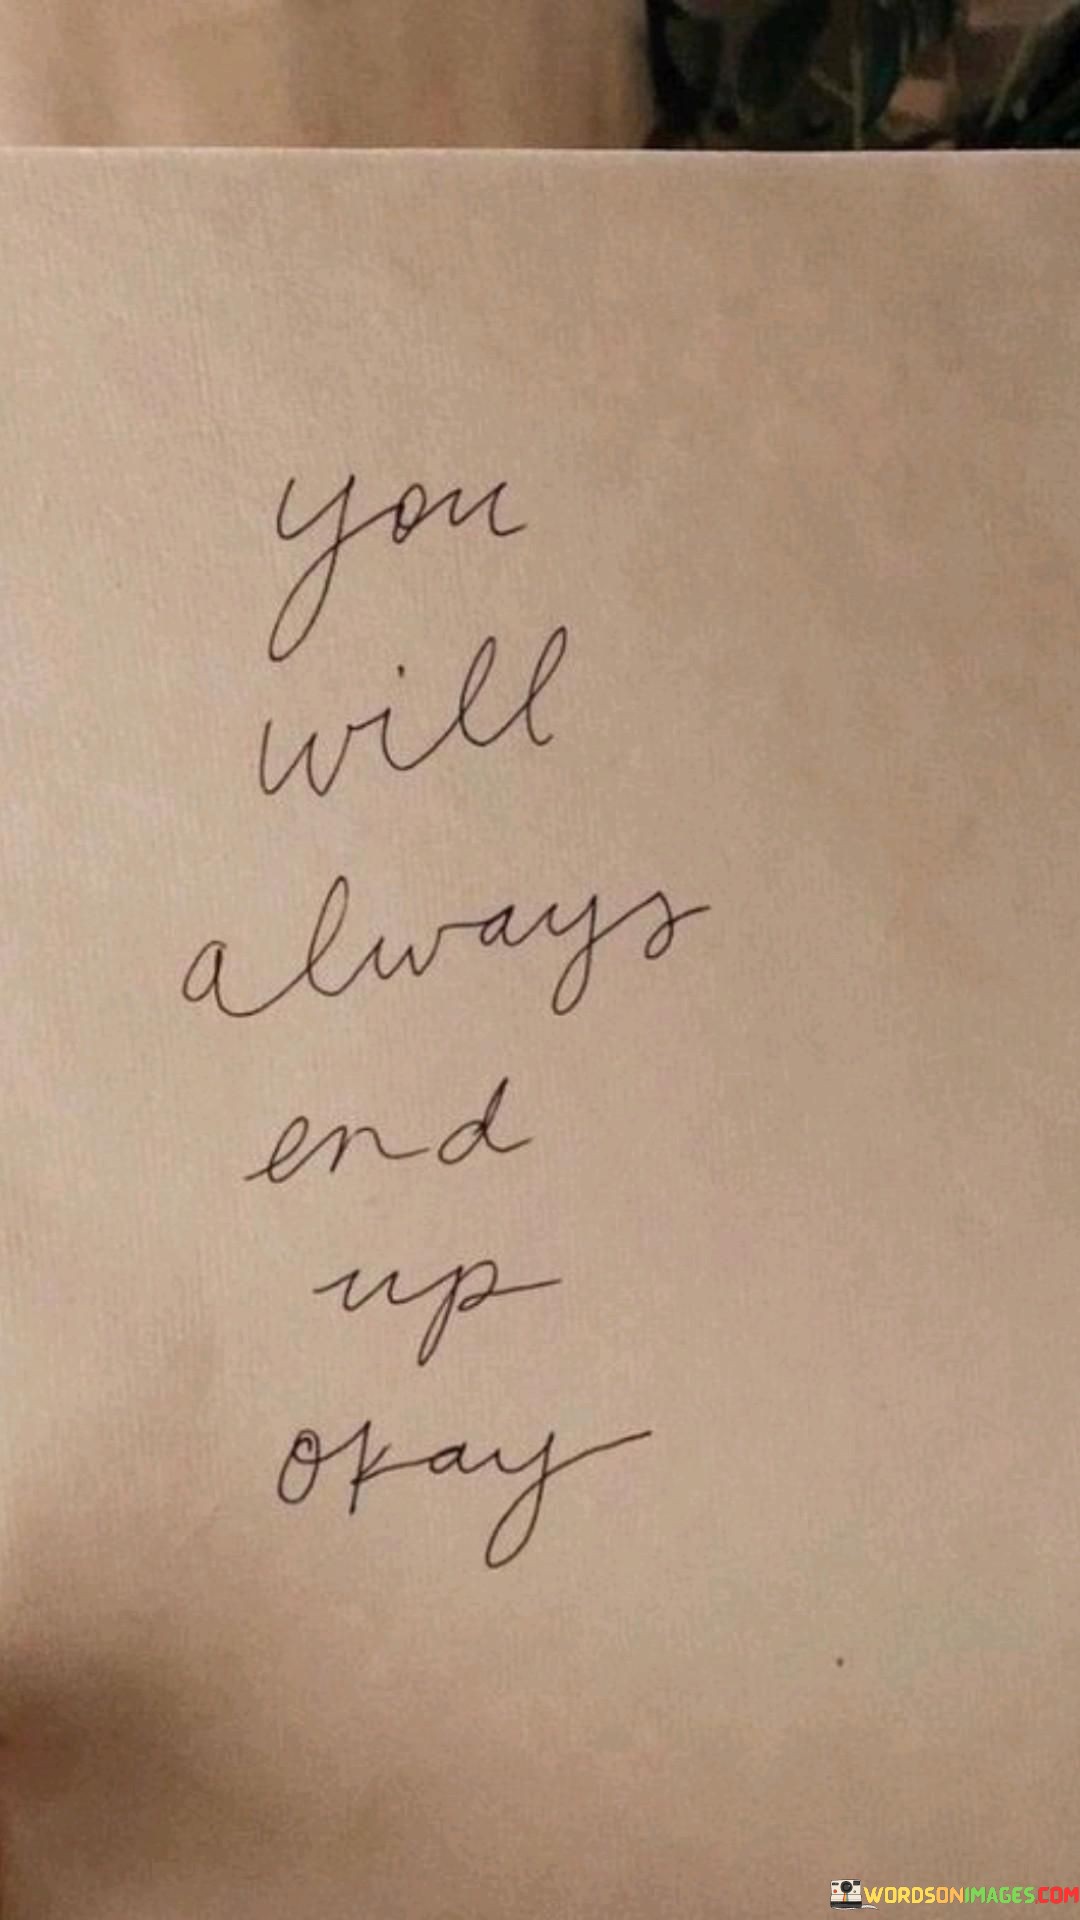 you
will
always
end
up
okay
WORDSONIMAGES.COM